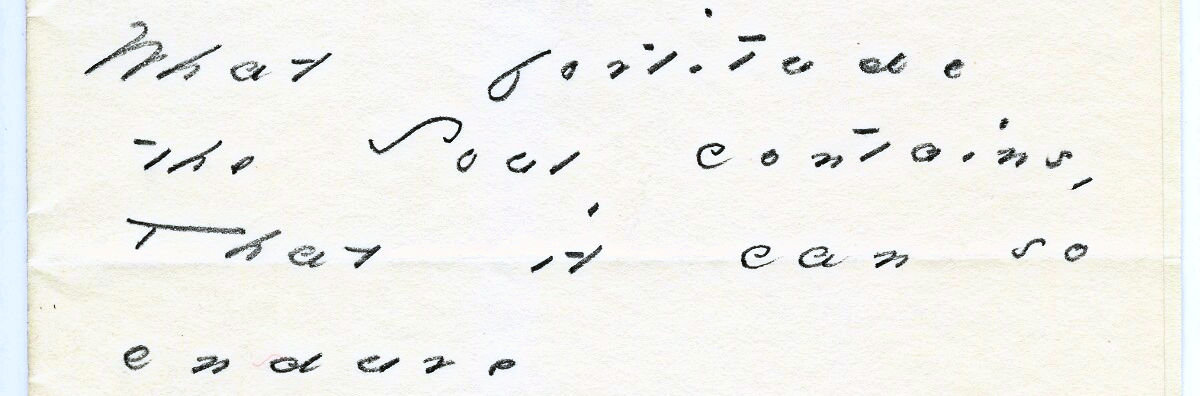 What fortitude
the Soul contains,
That it can so
endure